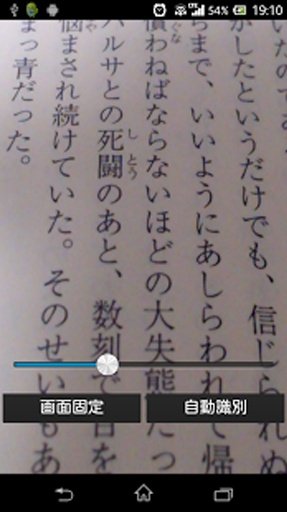 54% 19:10
いたので
がしたというだけでも、信じられぬ
ちまで、いいようにあしらわれて帰
償わねばならないほどの大失態だっ
バルサとの死闘のあと、数刻で目を
しとう
悩まされ続けていた。そのせいもあ
まっ青だった。
画面固定
自動識別